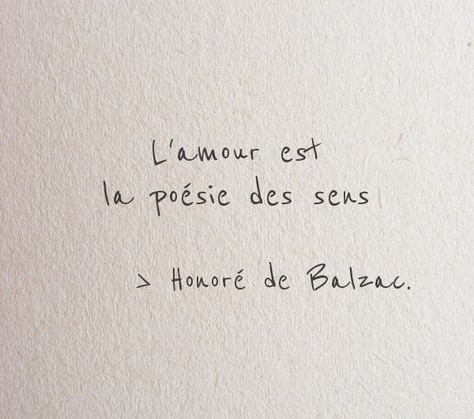 L'amour est
la poésie des sens
> Honoré de Balzac.